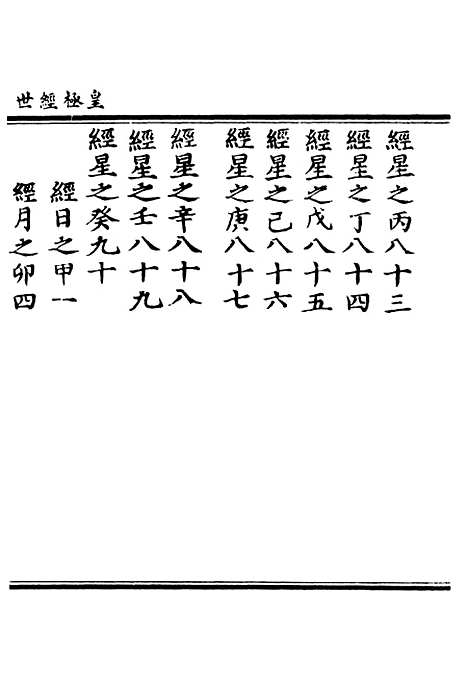 皇極經世
經星之丙八十三
經星之丁八十四
經星之戊八十五
經星之己八十六
經星之庚八十七
經星之辛八十八
經星之壬八十九
經星之癸九十
經日之甲一
經月之卯四